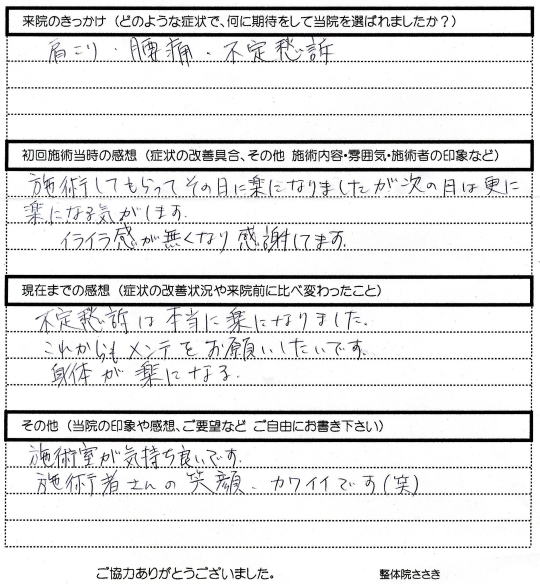 来院のきっかけ（どのような症状で、何に期待をして当院を選ばれましたか？）
肩こり・腰痛・不定愁訴
初回施術当時の感想（症状の改善具合、その他 施術内容・雰囲気・施術者の印象など）
施術してもらってその日に楽になりましたが次の日は更に
楽になる気がします。
イライラ感が無くなり感謝してます。
現在までの感想（症状の改善状況や来院前に比べ変わったこと）
不定愁訴は本当に楽になりました。
これからもメンテをお願いしたいです。
身体が楽になる。
その他（当院の印象や感想、ご要望など ご自由にお書き下さい）
施術室が気持ち良いです。
施術者さんの笑顔、カワイイです(笑)
ご協力ありがとうございました。 整体院ささき